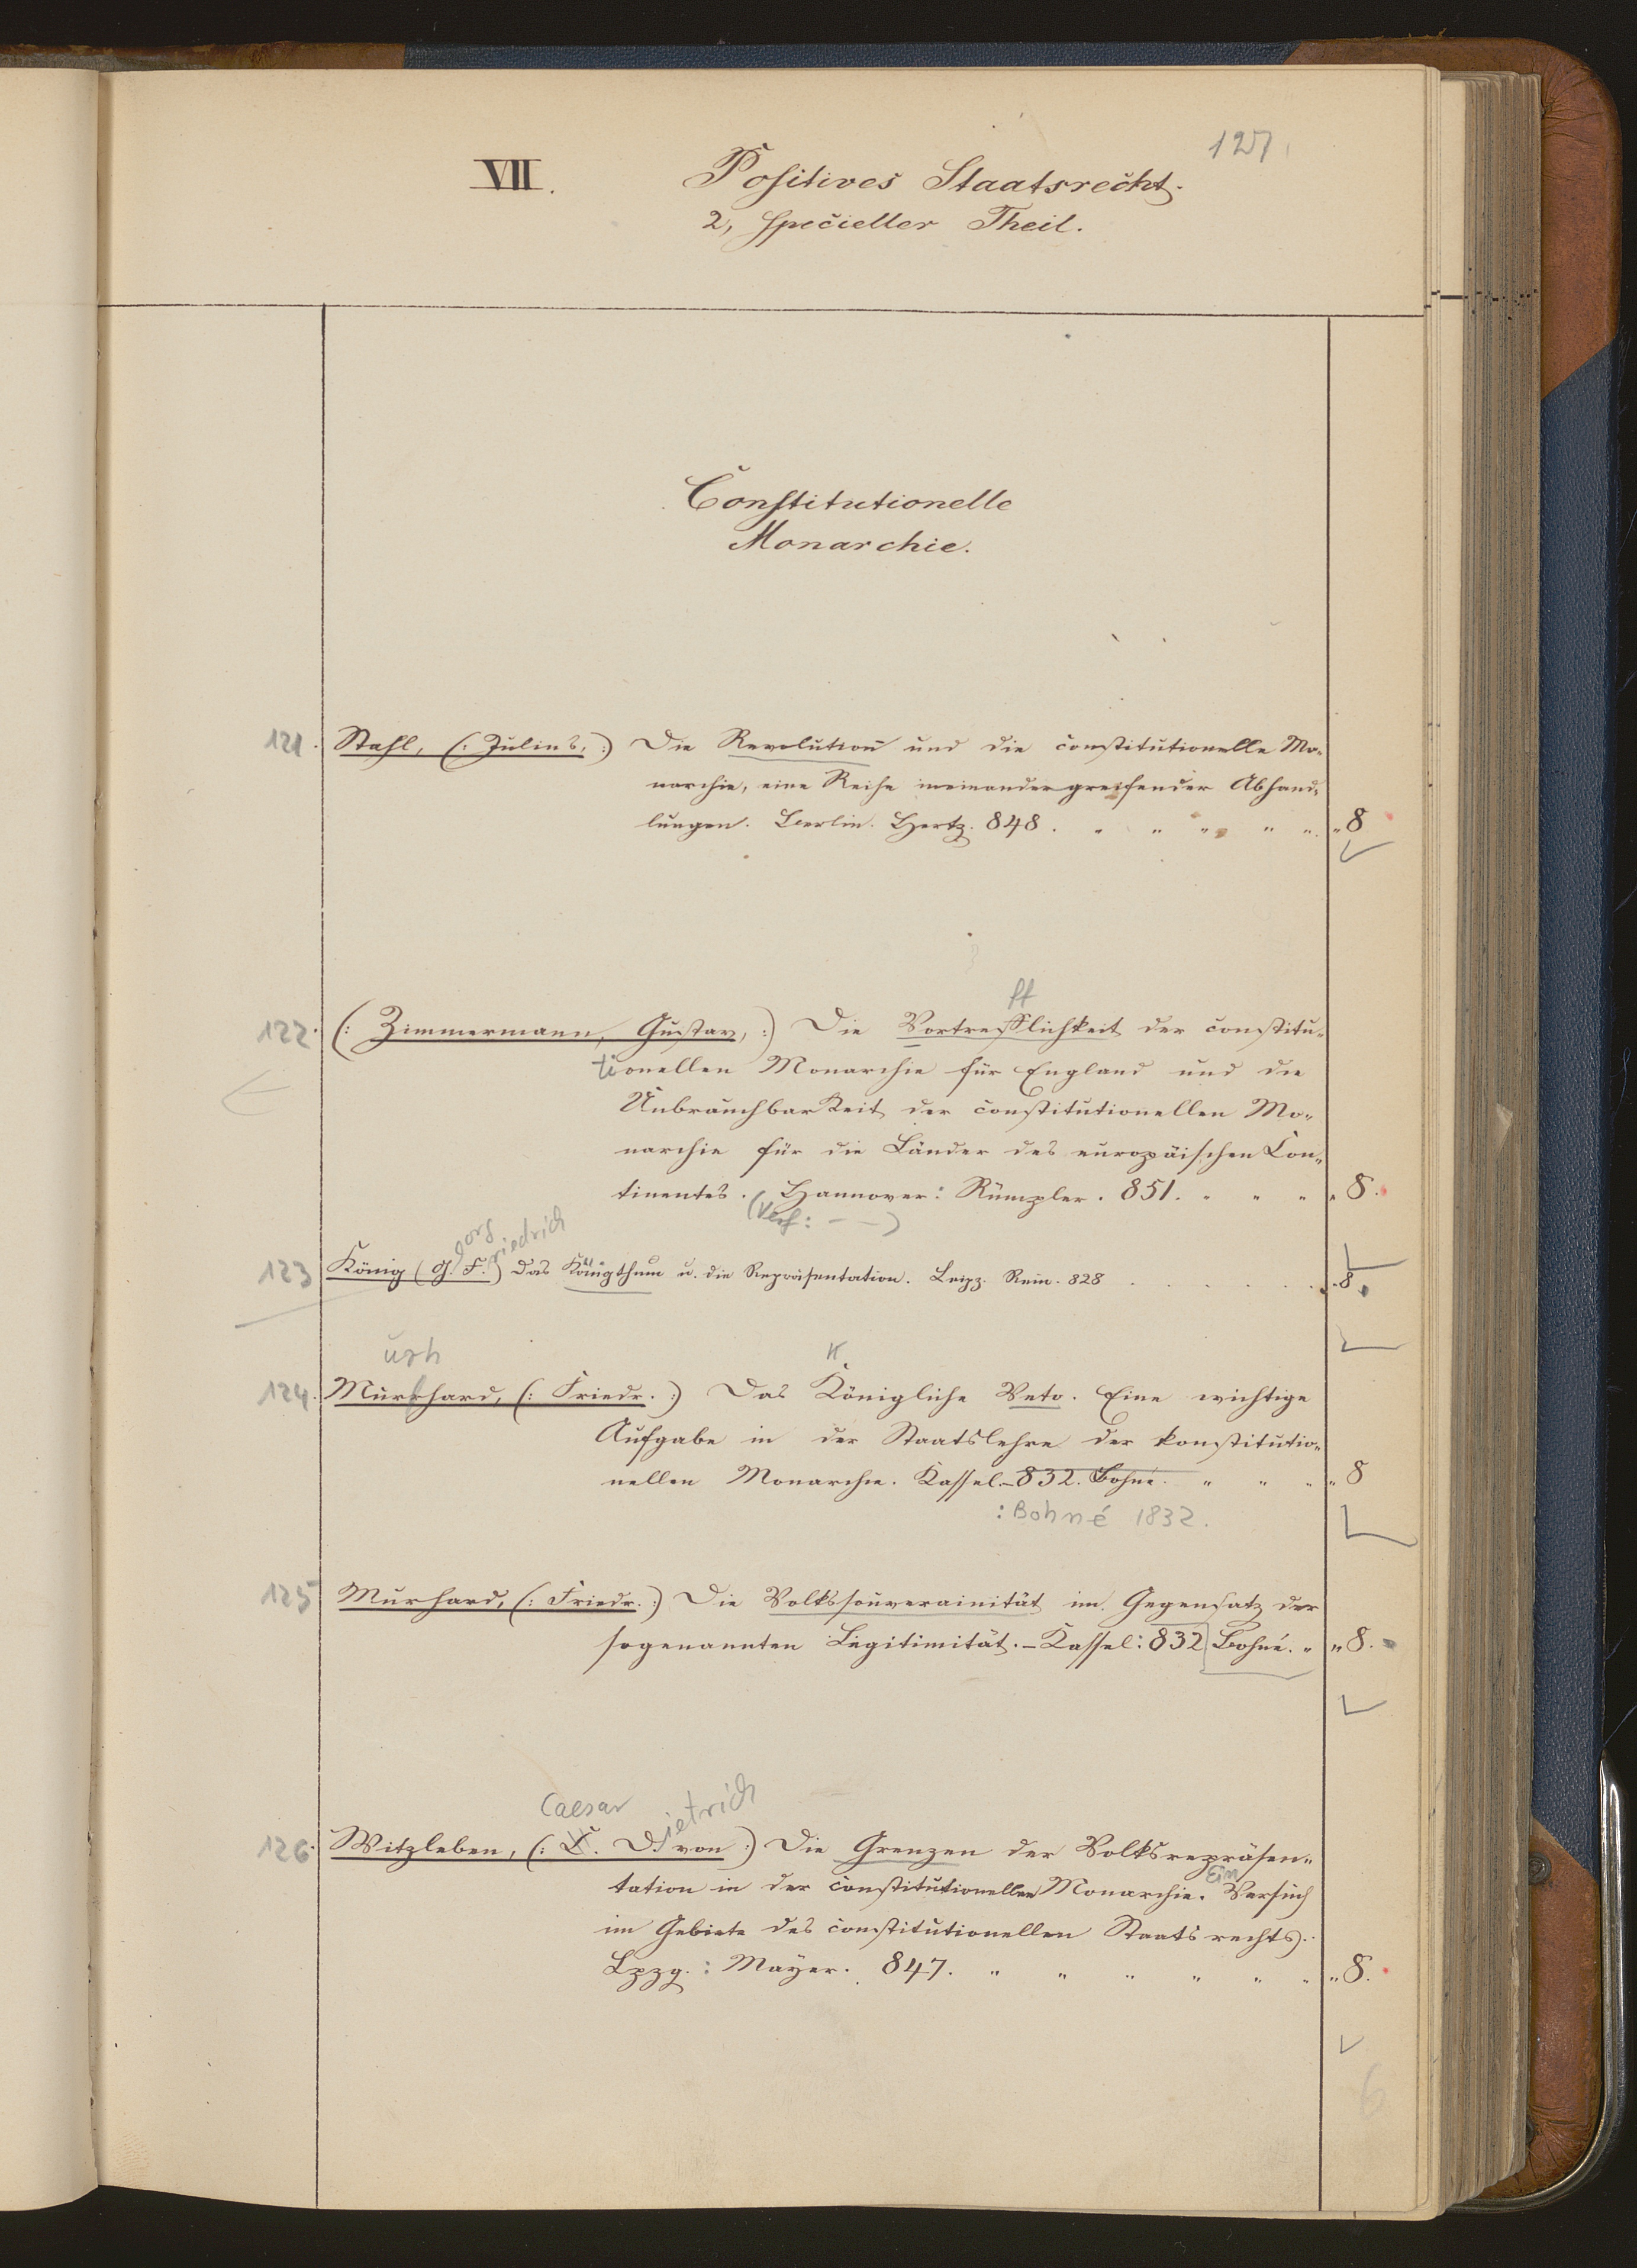 127
VII. Positives Staatsrecht.
2, specieller Theil.
Constitutionelle
Monarchie.
121. Stahl, (: Julius, :) Die Revolution und die constitutionelle Mo-
narchie, eine Reihe ineinandergreifender Abhand-
lungen. Berlin. Hertz. 848. " " " " " " 8
ff
122. (: Zimmermann, Gustav, :) Die Vortrefflichkeit der constitu-
tionellen Monarchie für England und die
Unbrauchbarkeit der constitutionellen Mo-
narchie für die Länder des europäischen Con-
tinentes. Hannover: Rümpler. 851. " " " " 8.
(Verf: – –)
eorg riedrich
123 König (G. F.) Das Königthum u. die Repräsentation. Leipz. Rein. 828 . . . . . . 8.
urh K
124. Murkhard, (: Friedr. :) Das Königliche Veto. Eine wichtige
Aufgabe in der Staatslehre der konstitutio-
nellen Monarchie. Kassel.–832. Bohné. " " " " 8
: Bohné 1832.
125 Murhard, (: Friedr. :) Die Volkssouverainität im Gegensatz der
sogenannten Legitimität.–Kassel: 832 Bohné. " " 8.
Caesar ietrich
126. Witzleben, (: C. D. von :) Die Grenzen der Volksrepräsen-
Ein
tation in der constitutionellen Monarchie. Versuch
im Gebiete des constitutionellen Staatsrechts.
Lpzg.: Mayer. 847. " " " " " " " 8.
6